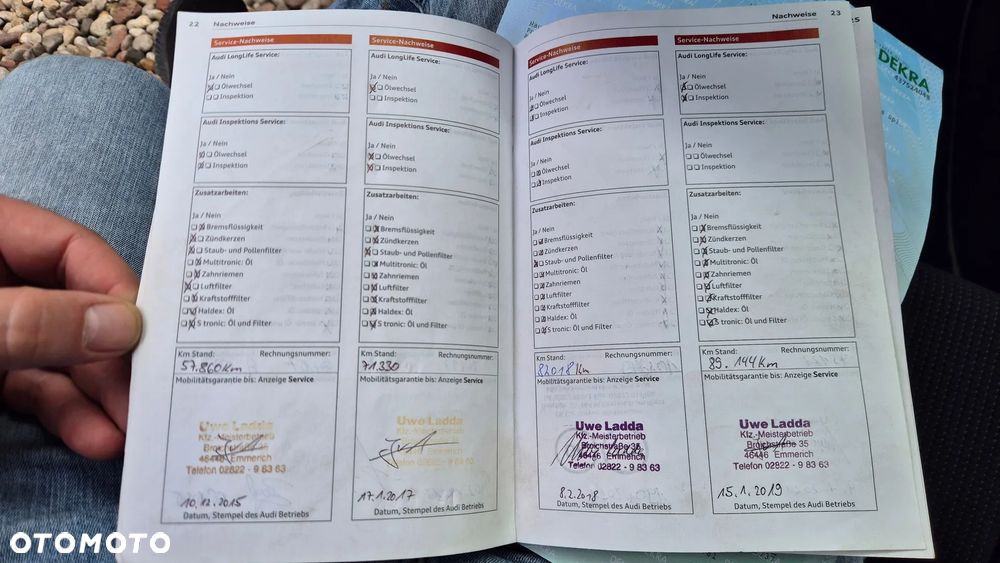 22 Nachweise
Service-Nachweise
Audi LongLife Service:
Ja / Nein
Ölwechsel
Inspektion
Audi Inspektions Service:
Ja / Nein
Ölwechsel
Inspektion
Zusatzarbeiten:
Ja / Nein
Bremsflüssigkeit
Zündkerzen
Staub- und Pollenfilter
Multitronic: Öl
Zahnriemen
Luftfilter
Kraftstofffilter
Haldex: Öl
S tronic: Öl und Filter
Km Stand: Rechnungsnummer:
57.860 Km
Mobilitätsgarantie bis: Anzeige Service
Uwe Ladda
Kfz.-Meisterbetrieb
Broichstraße 35
46446 Emmerich
Telefon 02822 - 9 83 63
10.12.2015
Datum, Stempel des Audi Betriebs
Service-Nachweise
Audi LongLife Service:
Ja / Nein
Ölwechsel
Inspektion
Audi Inspektions Service:
Ja / Nein
Ölwechsel
Inspektion
Zusatzarbeiten:
Ja / Nein
Bremsflüssigkeit
Zündkerzen
Staub- und Pollenfilter
Multitronic: Öl
Zahnriemen
Luftfilter
Kraftstofffilter
Haldex: Öl
S tronic: Öl und Filter
Km Stand: Rechnungsnummer:
71.330
Mobilitätsgarantie bis: Anzeige Service
Uwe Ladda
Kfz.-Meisterbetrieb
Broichstraße 35
46446 Emmerich
Telefon 02822 - 9 83 63
17.1.2017
Datum, Stempel des Audi Betriebs
Nachweise 23
Service-Nachweise
Audi LongLife Service:
Ja / Nein
Ölwechsel
Inspektion
Audi Inspektions Service:
Ja / Nein
Ölwechsel
Inspektion
Zusatzarbeiten:
Ja / Nein
Bremsflüssigkeit
Zündkerzen
Staub- und Pollenfilter
Multitronic: Öl
Zahnriemen
Luftfilter
Kraftstofffilter
Haldex: Öl
S tronic: Öl und Filter
Km Stand: Rechnungsnummer:
82018 Km
Mobilitätsgarantie bis: Anzeige Service
Uwe Ladda
Kfz.-Meisterbetrieb
Broichstraße 35
46446 Emmerich
Telefon 02822 - 9 83 63
8.2.2018
Datum, Stempel des Audi Betriebs
Service-Nachweise
Audi LongLife Service:
Ja / Nein
Ölwechsel
Inspektion
Audi Inspektions Service:
Ja / Nein
Ölwechsel
Inspektion
Zusatzarbeiten:
Ja / Nein
Bremsflüssigkeit
Zündkerzen
Staub- und Pollenfilter
Multitronic: Öl
Zahnriemen
Luftfilter
Kraftstofffilter
Haldex: Öl
S tronic: Öl und Filter
Km Stand: Rechnungsnummer:
89.144 Km
Mobilitätsgarantie bis: Anzeige Service
Uwe Ladda
Kfz.-Meisterbetrieb
Broichstraße 35
46446 Emmerich
Telefon 02822 - 9 83 63
15.1.2019
Datum, Stempel des Audi Betriebs
25
DEKRA
OTOMOTO